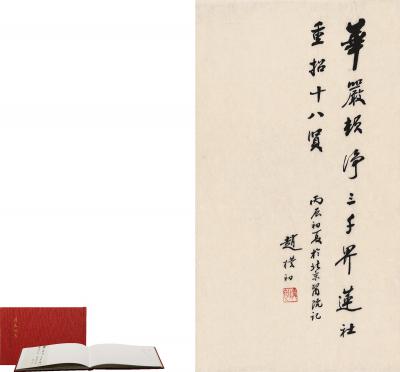 華嚴頓淨三千界蓮社
重招十八賢
丙辰初夏於北京醫院記
趙樸初